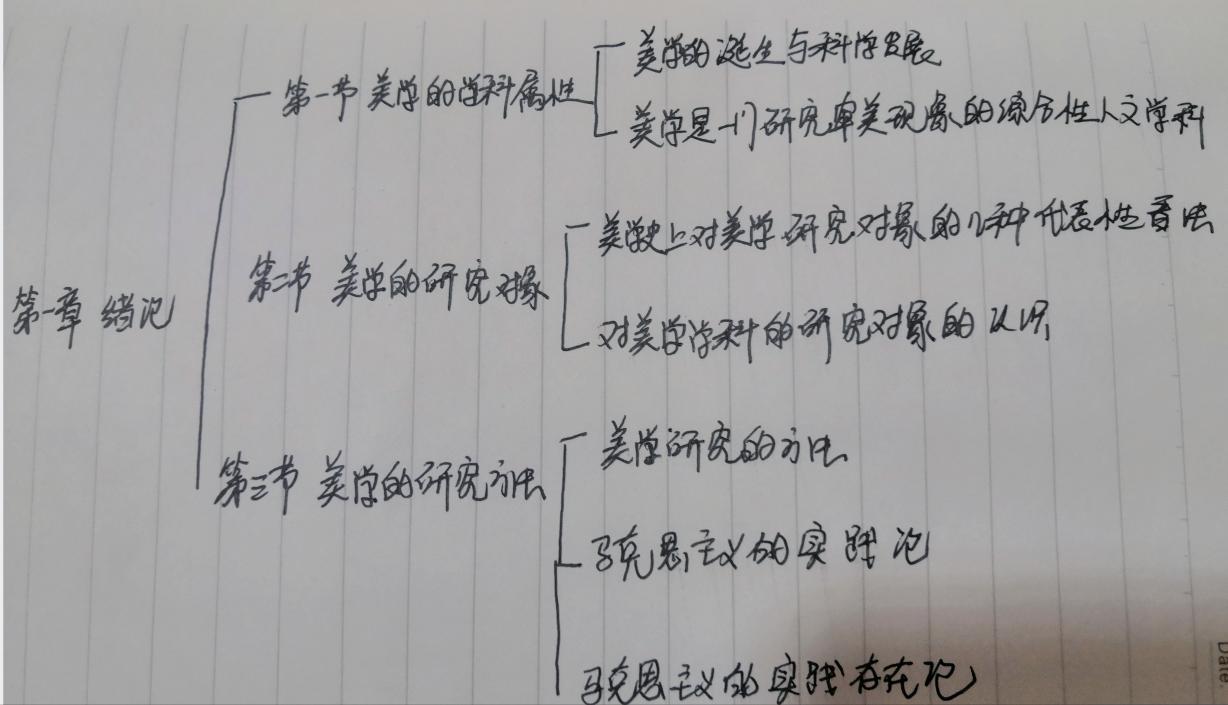 第一章 绪论
第一节 美学的学科属性
美学的诞生与科学发展
美学是一门研究审美现象的综合性人文学科
第二节 美学的研究对象
美学史上对美学研究对象的几种代表性看法
对美学学科的研究对象的认识
第三节 美学的研究方法
美学研究的方法
马克思主义的实践论
马克思主义的实践存在论
Date